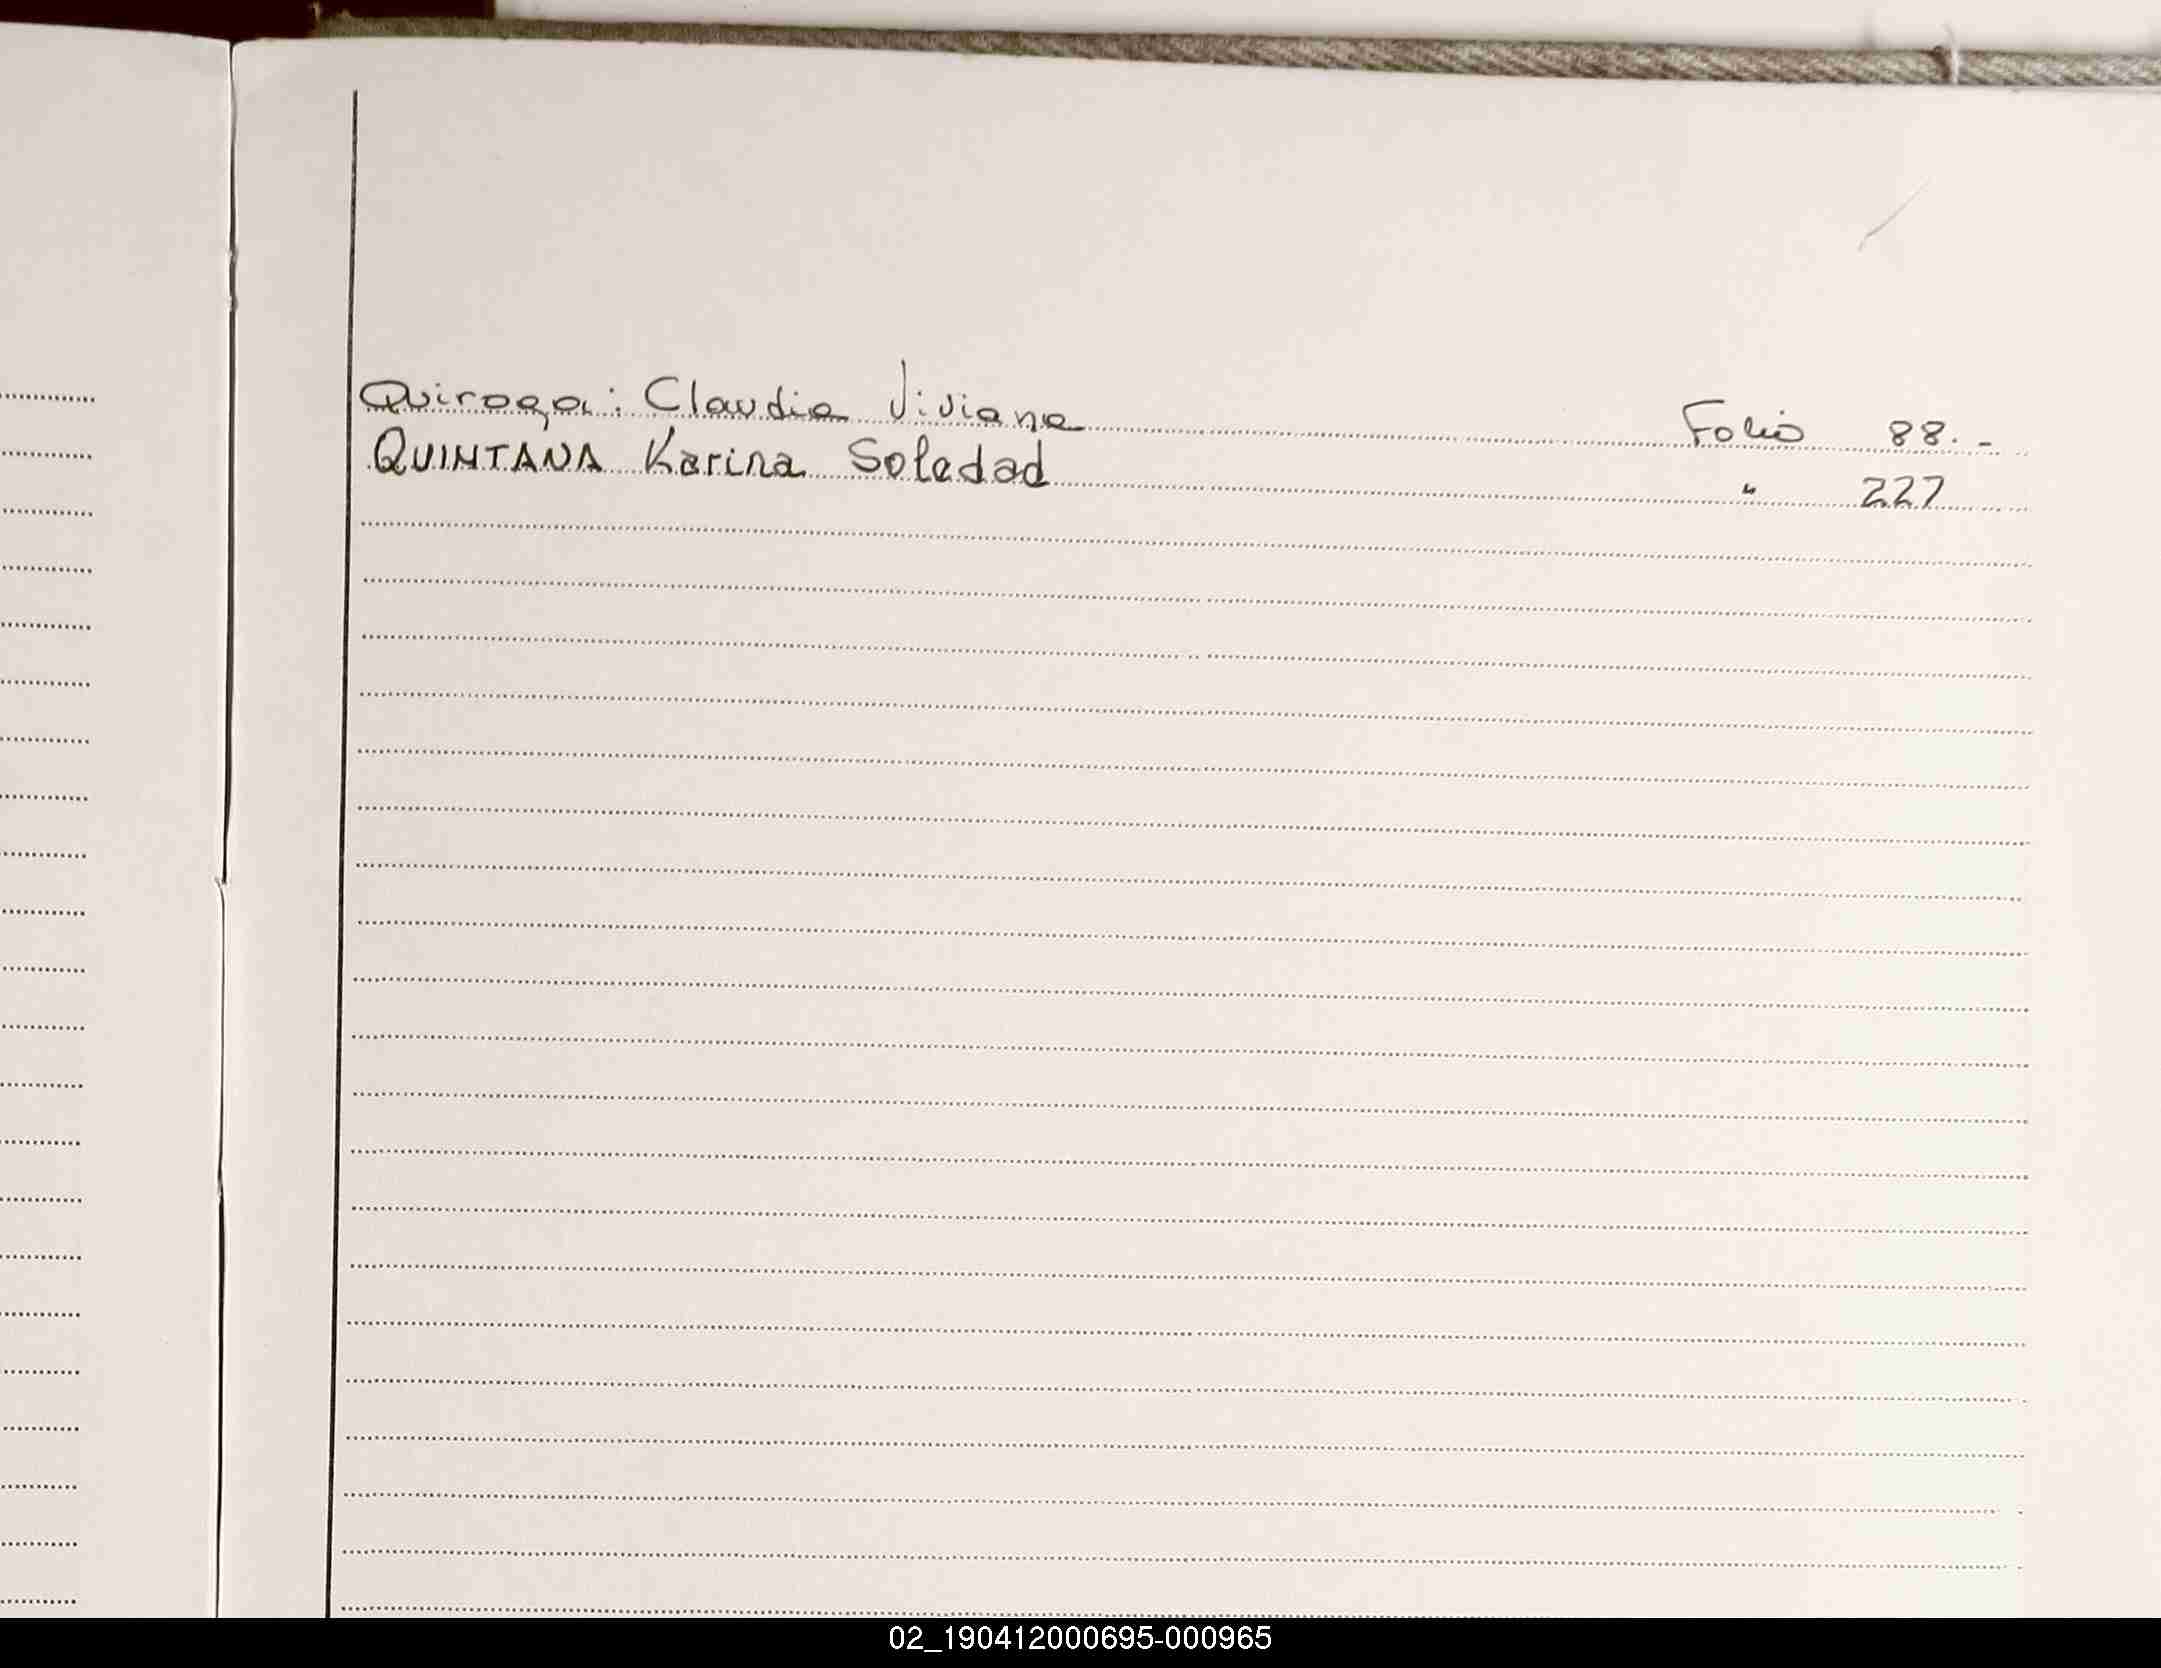 Quiroga: Claudia Viviana Folio 88.-
QUINTANA Karina Soledad " 227
02_190412000695-000965